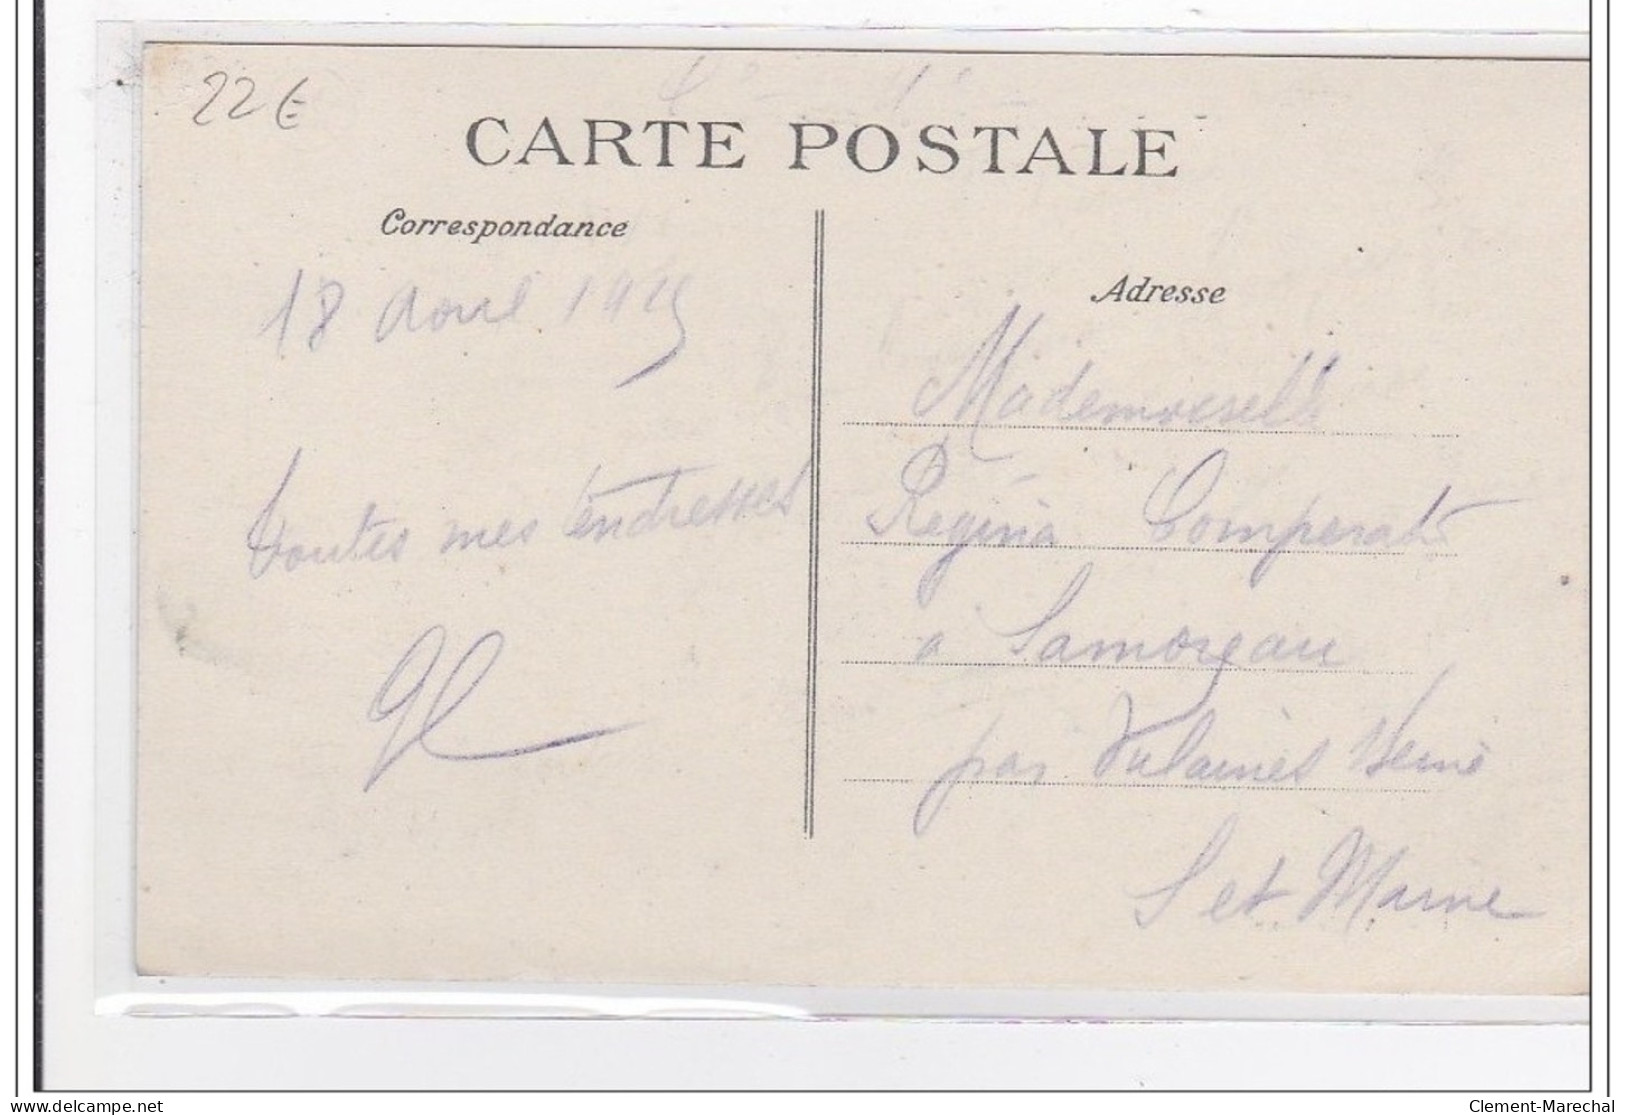 22€
CARTE POSTALE
Correspondance
18 Avril 1915
toutes mes tendresses
Adresse
Mademoiselle
Régina
a Samoreau
par Vulaines Seine
S et Marne
delcampe.net
Clement-Marechal